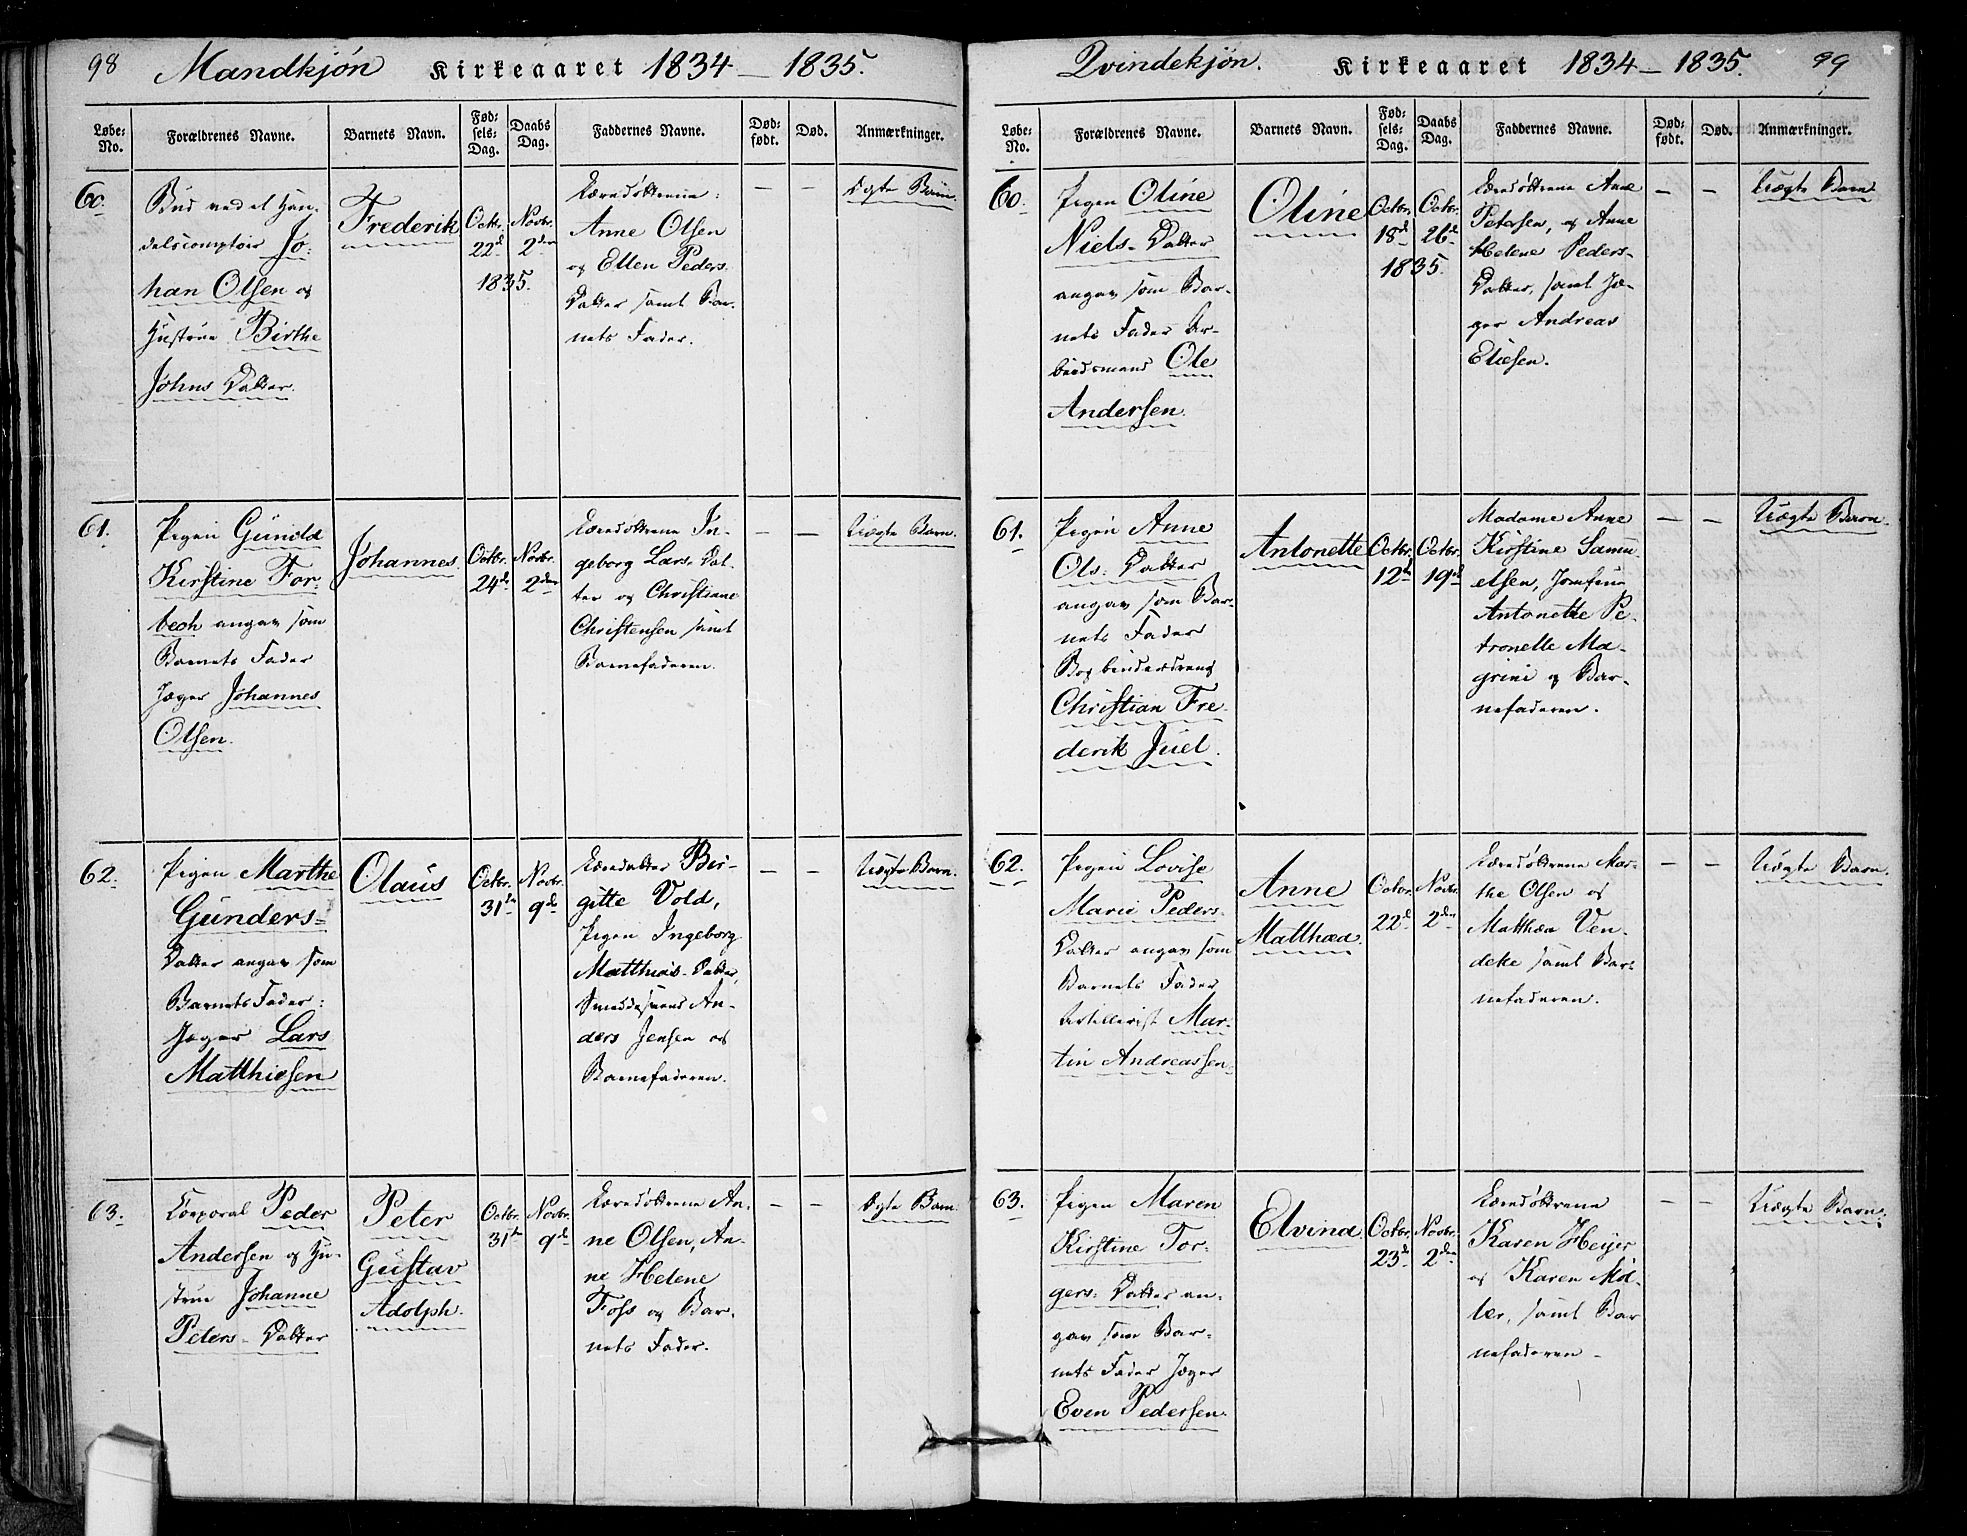 98 Mandkjøn Kirkeaaret 1834 — 1835.
Løbe- No. Forældrenes Navne. Barnets Navn. Fød- sels- Dag. Daabs Dag. Faddernes Navne. Død- født. Død. Anmærkninger.
60 Bud ved et Han-
delscomptoir Jo-
han Olsen og
Hustrue Birthe
Johns Datter.
Frederik
Octbr.
22d
Novbr.
2den
1835.
Anne Olsen
og Ellen Peders
Datter samt Bar-
nets Fader.
— —
Egte Barn.
61. Pigen Gunild
Kirstine For-
bech angav som
Barnets Fader
Jæger Johannes
Olsen.
Johannes
Octbr.
24de
Novbr.
2den
In-
geborg Lars. Dat-
ter og Christiane
Christensen samt
Barnefaderen.
— —
Uægte Barn.
62. Pigen Marthe
Gunders-
Datter angav som
Barnets Fader:
Jæger Lars
Matthiesen
Olaus
Octbr.
31te
Novbr.
9de
Bir-
gitte Vold,
Pigen Ingeborg
Matthias-Datter,
Smeddesvend An-
ders Jensen og
Barnefaderen.
— —
Uægte Barn.
63. Corporal Peder
Andersen og Hu-
strue Johanne
Peters-Datter
Peter
Gustav
Adolph.
Octbr.
31te
Novbr.
9de
An-
ne Olsen, An-
ne Helene
Foss og Bar-
nets Fader.
— —
Egte Barn.
Qvindekjøn. Kirkeaaret 1834 — 1835. 99
Løbe- No. Forældrenes Navne. Barnets Navn. Fød- sels- Dag. Daabs Dag. Faddernes Navne. Død- født. Død. Anmærkninger.
60. Pigen Oline
Niels-Datter
angav som Bar-
nets Fader Ar-
beidsmand Ole
Andersen.
Oline
Octbr.
18de
Octbr.
26de
1835.
Anne
Petersen, og Anne
Helene Peders-
Datter, samt Jæ-
ger Andreas
Eliesen.
— —
Uægte Barn
61. Pigen Anne
Ols. Datter
angav som Bar-
nets Fader
Bogbinderdreng
Christian Fre-
derik Juel.
Antonette
Octbr.
12te
Octbr.
19de
Madame Anne
Kirstine Samu-
elsen, Jomfrue
Antonette Pe-
tronelle Ma-
grini og Bar-
nefaderen.
— —
Uægte Barn.
62. Pigen Lovise
Marie Peders-
Datter angav som
Barnets Fader
Artillerist Mar-
tin Andreassen.
Anne
Matthæa
Octbr.
22de
Novbr.
2den
Mar-
the Olsen og
Matthæa Ven-
deke samt Bar-
nefaderen.
— —
Uægte Barn.
63. Pigen Maren
Kirstine Tor-
gers: Datter an-
gav som Bar-
nets Fader Jæger
Even Pedersen.
Elvina
Octbr.
23de
Novbr.
2den
Karen Heyer
og Karen Møl-
ler, samt Bar
nefaderen —
— —
Uægte Barn.